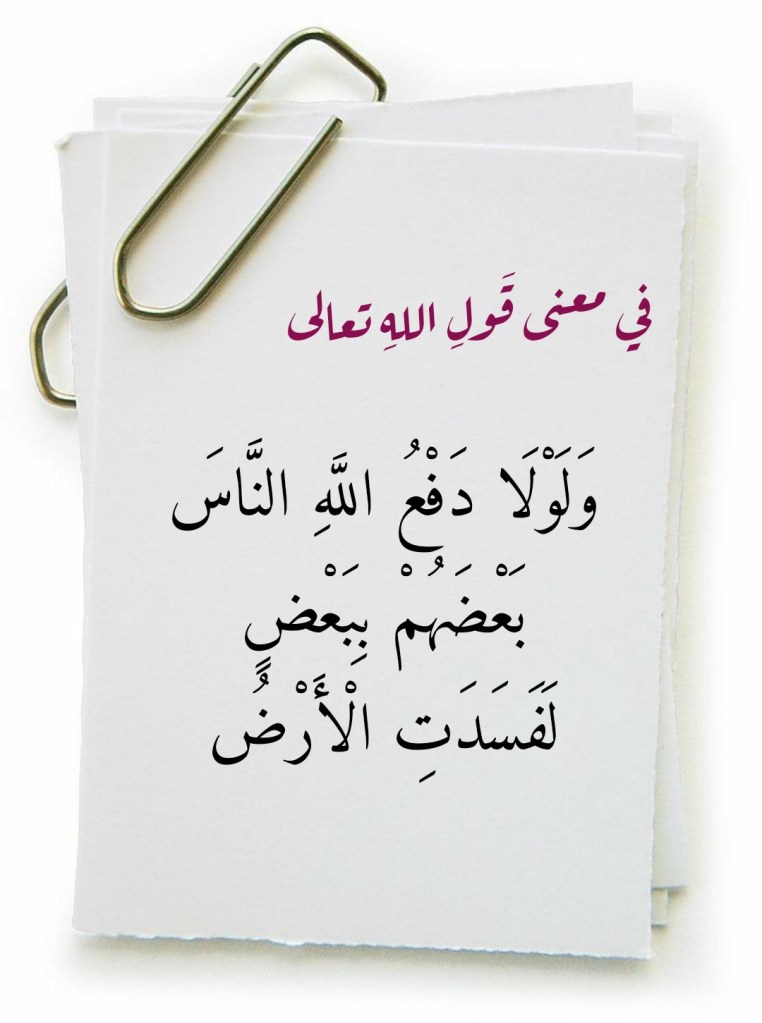 في معنى قَولِ اللهِ تعالى
وَلَوْلَا دَفْعُ اللَّهِ النَّاسَ
بَعْضَهُمْ بِبَعْضٍ
لَفَسَدَتِ الْأَرْضُ